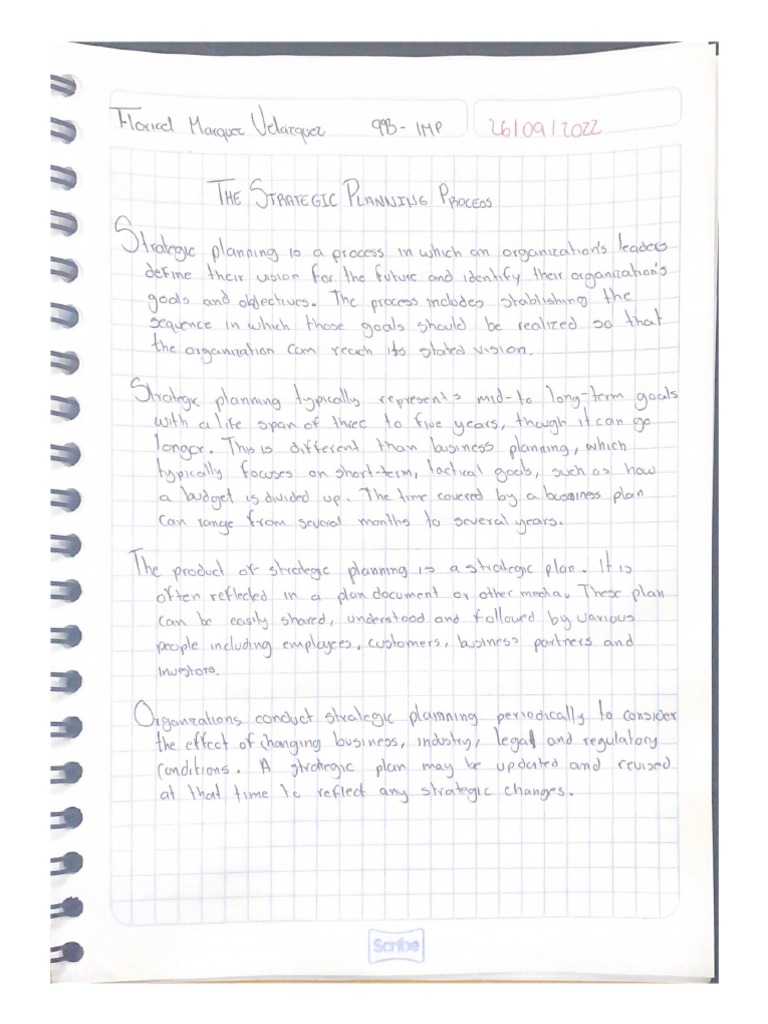 Floricel Marquez Velazquez 9°B - IMP 26/09/2022
THE STRATEGIC PLANNING PROCESS
Strategic planning is a process in which an organization's leaders
define their vision for the future and identify their organization's
goals and objectives. The process includes stablishing the
sequence in which those goals should be realized so that
the organization can reach its stated vision.
Strategic planning typically represents mid-to long-term goals
with a life span of three to five years, though it can go
longer. This is different than business planning, which
typically focuses on short-term, tactical goals, such as how
a budget is divided up. The time covered by a bussiness plan
can range from several months to several years.
The product of strategic planning is a strategic plan. It is
often reflected in a plan document or other media. These plan
can be easily shared, understood and followed by various
people including employees, customers, business partners and
investors.
Organizations conduct strategic planning periodically to consider
the effect of changing business, industry, legal and regulatory
conditions. A strategic plan may be updated and revised
at that time to reflect any strategic changes.
Scribe